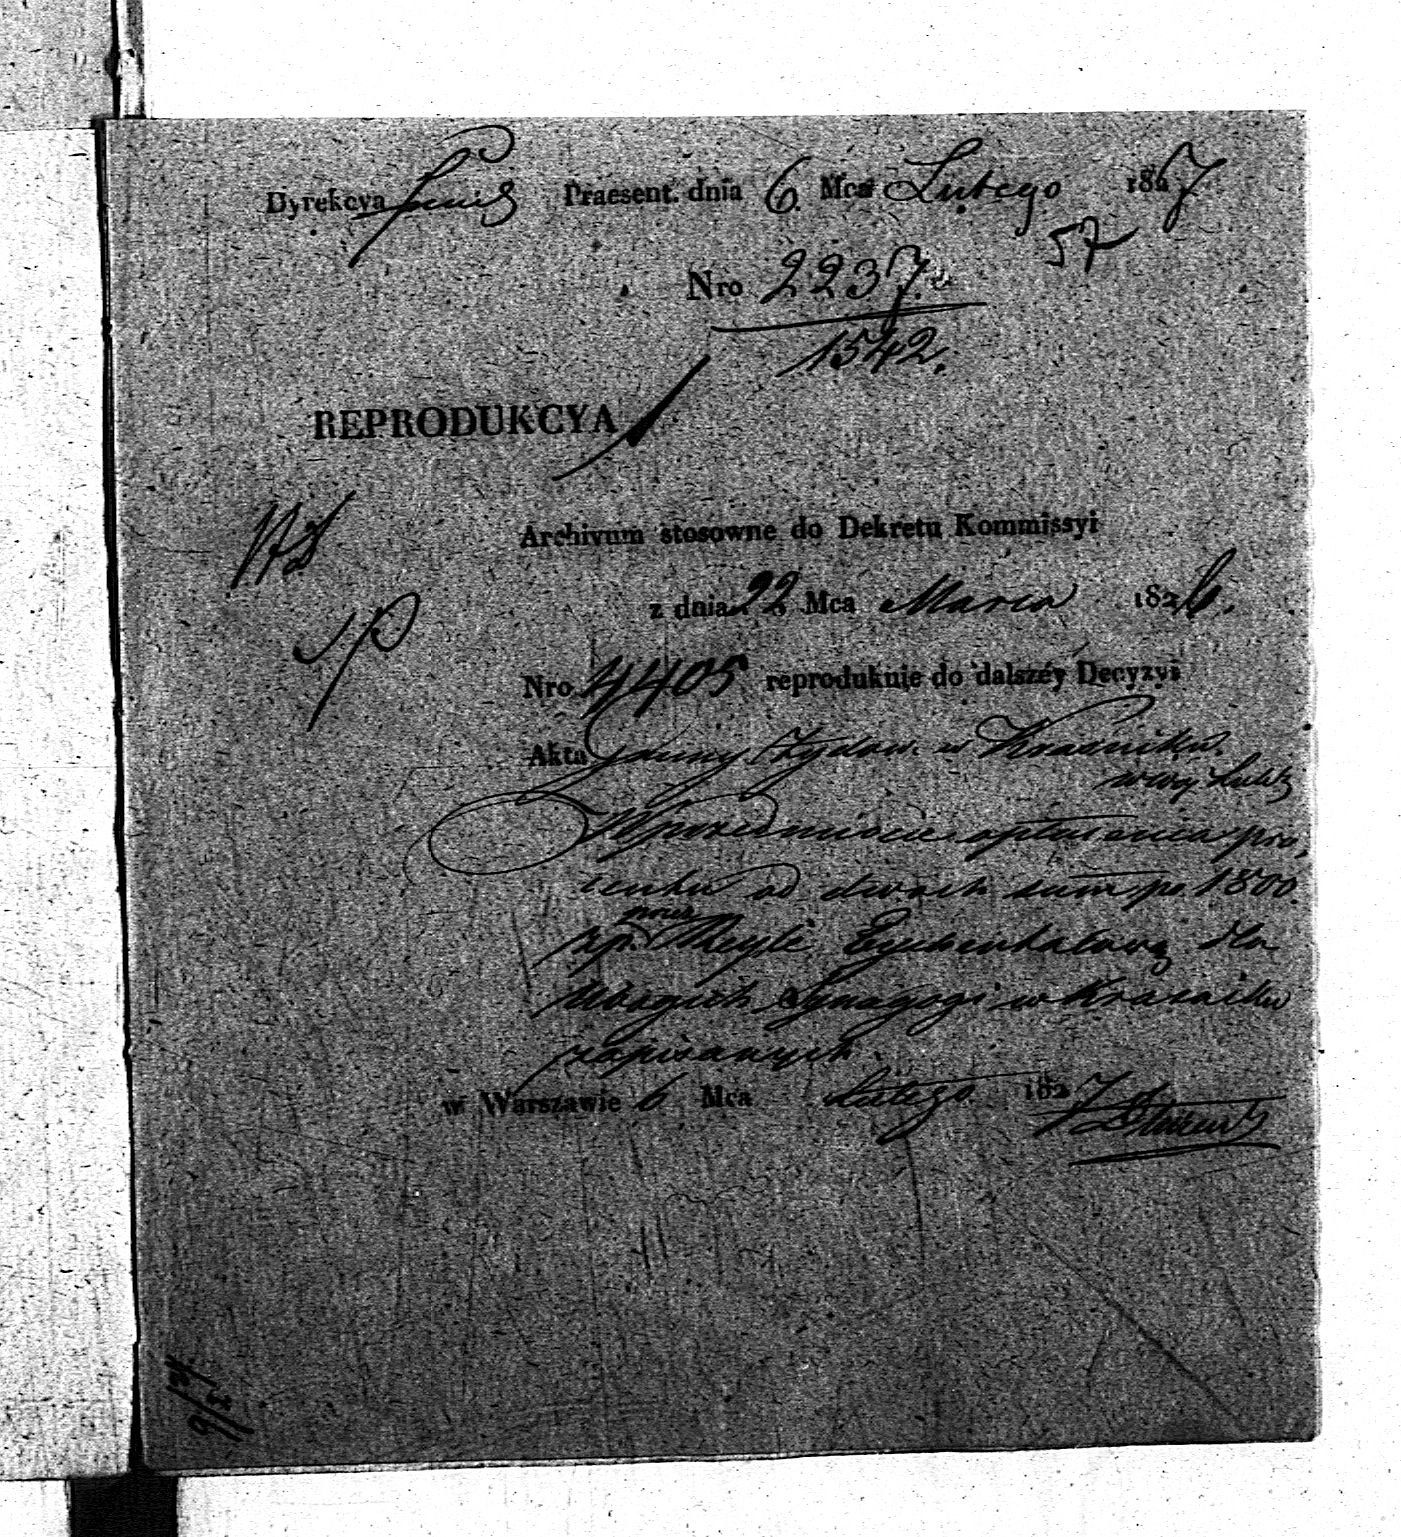 Dyrekcya Praesent. dnia 6. Mca Lutego 1827
57
Nro 2237.
1542.
REPRODUKCYA
Archivum stosowne do Dekretu Kommissyi
z dnia 22 Mca Marca 1826.
Nro 4405 reprodukuie do dalszéy Decyzyi
Akta Gminy Żydow. w Kraśniku.
w woj. Lubel.
W przedmiocie opłacania pro,
centu od dwoch summ po 1800.
zp. przez dla
ubogich Synagogi w Krasniku
zapisanych.
w Warszawie 6 Mca Lutego 1827